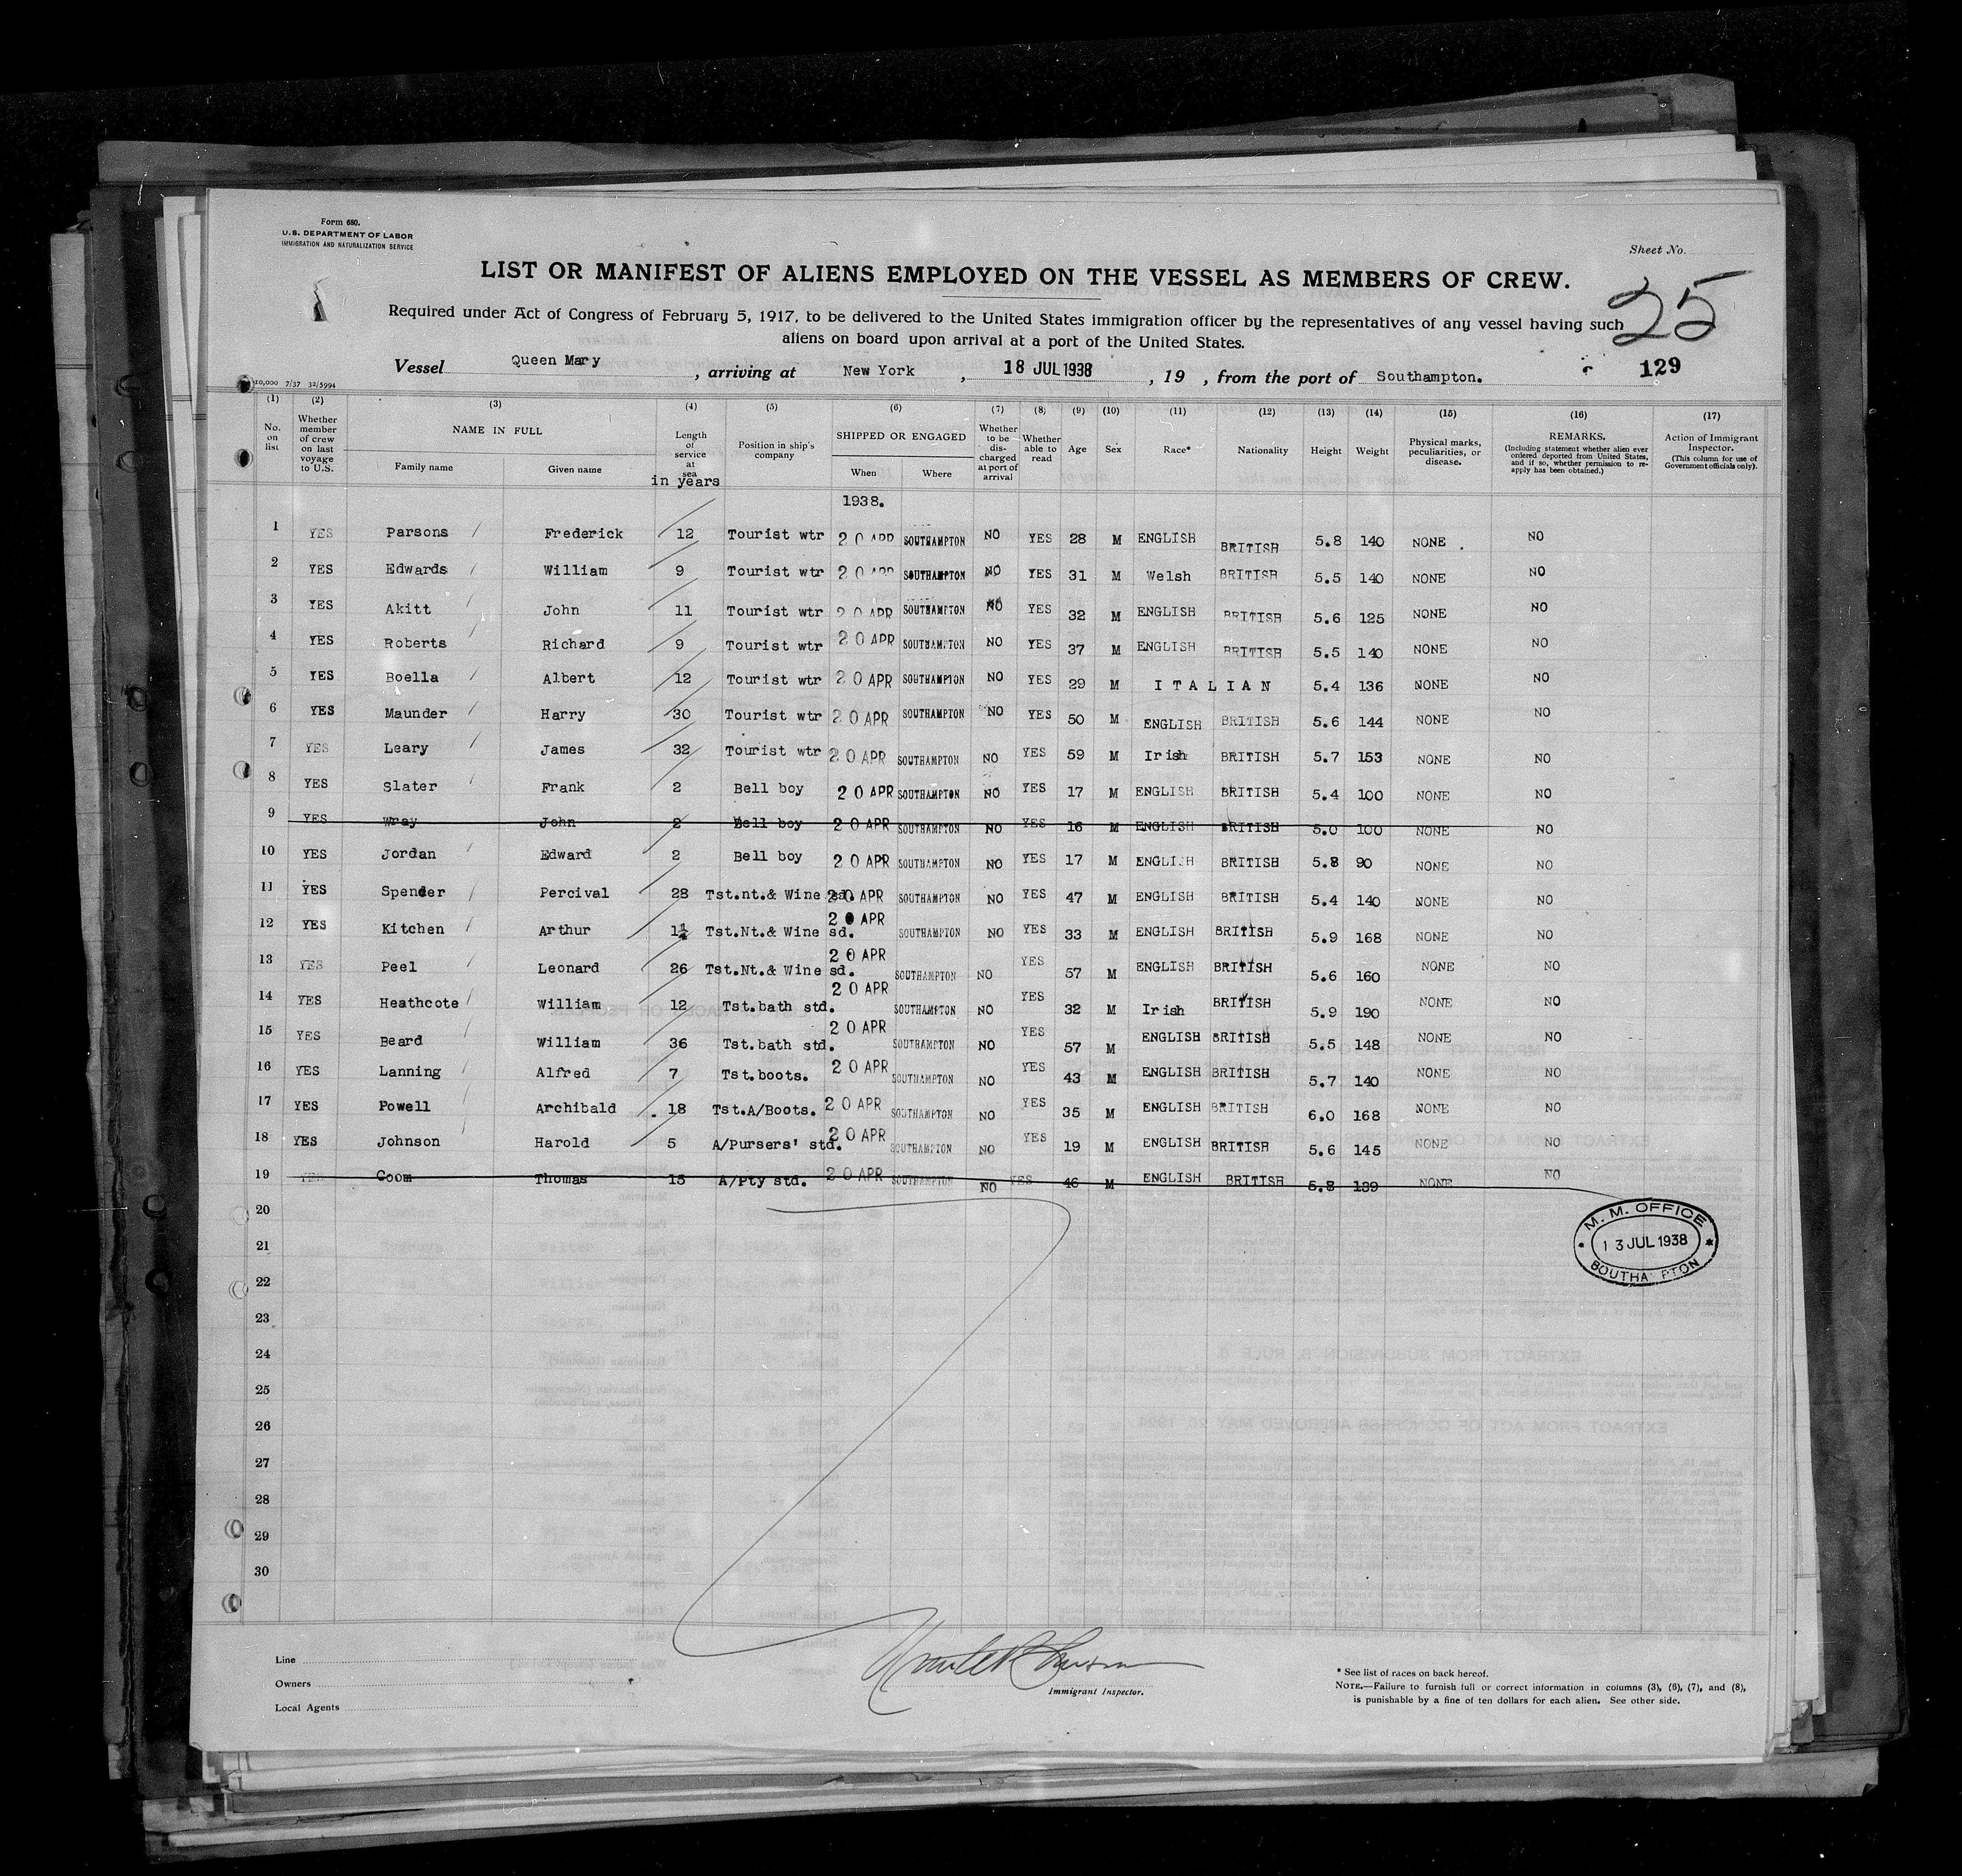 Form 680.
U.S. DEPARTMENT OF LABOR
IMMIGRATION AND NATURALIZATION SERVICE
Sheet No.
LIST OR MANIFEST OF ALIENS EMPLOYED ON THE VESSEL AS MEMBERS OF CREW.
25
Required under Act of Congress of February 5, 1917, to be delivered to the United States immigration officer by the representatives of any vessel having such
aliens on board upon arrival at a port of the United States.
Vessel Queen Mary, arriving at New York, 18 JUL 1938, 19 , from the port of Southampton. 129
10,000 7/37 32/5994
(1) (2) (3) (4) (5) (6) (7) (8) (9) (10) (11) (12) (13) (14) (15) (16) (17)
No. on list
Whether member of crew on last voyage to U.S.
NAME IN FULL
Family name Given name
Length of service at sea
in years
Position in ship's company
SHIPPED OR ENGAGED
When Where
Whether to be discharged at port of arrival
Whether able to read
Age
Sex
Race*
Nationality
Height
Weight
Physical marks, peculiarities, or disease.
REMARKS.
(Including statement whether alien ever ordered deported from United States, and if so, whether permission to reapply has been obtained.)
Action of Immigrant Inspector.
(This column for use of Government officials only).
1938.
1 YES Parsons Frederick 12 Tourist wtr 20 APR SOUTHAMPTON NO YES 28 M ENGLISH BRITISH 5.8 140 NONE NO
2 YES Edwards William 9 Tourist wtr 20 APR SOUTHAMPTON NO YES 31 M Welsh BRITISH 5.5 140 NONE NO
3 YES Akitt John 11 Tourist wtr 20 APR SOUTHAMPTON NO YES 32 M ENGLISH BRITISH 5.6 125 NONE NO
4 YES Roberts Richard 9 Tourist wtr 20 APR SOUTHAMPTON NO YES 37 M ENGLISH BRITISH 5.5 140 NONE NO
5 YES Boella Albert 12 Tourist wtr 20 APR SOUTHAMPTON NO YES 29 M ITALIAN 5.4 136 NONE NO
6 YES Maunder Harry 30 Tourist wtr 20 APR SOUTHAMPTON NO YES 50 M ENGLISH BRITISH 5.6 144 NONE NO
7 YES Leary James 32 Tourist wtr 20 APR SOUTHAMPTON NO YES 59 M Irish BRITISH 5.7 153 NONE NO
8 YES Slater Frank 2 Bell boy 20 APR SOUTHAMPTON NO YES 17 M ENGLISH BRITISH 5.4 100 NONE NO
9 YES Wray John 2 Bell boy 20 APR SOUTHAMPTON NO YES 16 M ENGLISH BRITISH 5.0 100 NONE NO
10 YES Jordan Edward 2 Bell boy 20 APR SOUTHAMPTON NO YES 17 M ENGLISH BRITISH 5.8 90 NONE NO
11 YES Spender Percival 28 Tst.nt.& Wine sd. 20 APR SOUTHAMPTON NO YES 47 M ENGLISH BRITISH 5.4 140 NONE NO
12 YES Kitchen Arthur 11 Tst.Nt.& Wine sd. 20 APR SOUTHAMPTON NO YES 33 M ENGLISH BRITISH 5.9 168 NONE NO
13 YES Peel Leonard 26 Tst.Nt.& Wine sd. 20 APR SOUTHAMPTON NO YES 57 M ENGLISH BRITISH 5.6 160 NONE NO
14 YES Heathcote William 12 Tst.bath std. 20 APR SOUTHAMPTON NO YES 32 M Irish BRITISH 5.9 190 NONE NO
15 YES Beard William 36 Tst.bath std. 20 APR SOUTHAMPTON NO YES 57 M ENGLISH BRITISH 5.5 148 NONE NO
16 YES Lanning Alfred 7 Tst.boots. 20 APR SOUTHAMPTON NO YES 43 M ENGLISH BRITISH 5.7 140 NONE NO
17 YES Powell Archibald 18 Tst.A/Boots. 20 APR SOUTHAMPTON NO YES 35 M ENGLISH BRITISH 6.0 168 NONE NO
18 YES Johnson Harold 5 A/Pursers' std. 20 APR SOUTHAMPTON NO YES 19 M ENGLISH BRITISH 5.6 145 NONE NO
19 YES Coom Thomas 15 A/Pty std. 20 APR SOUTHAMPTON NO YES 46 M ENGLISH BRITISH 5.8 139 NONE NO
20
21
22
23
24
25
26
27
28
29
30
M. M. OFFICE
13 JUL 1938
SOUTHAMPTON
Line
Owners
Local Agents
Immigrant Inspector.
* See list of races on back hereof.
NOTE.—Failure to furnish full or correct information in columns (3), (6), (7), and (8),
is punishable by a fine of ten dollars for each alien. See other side.